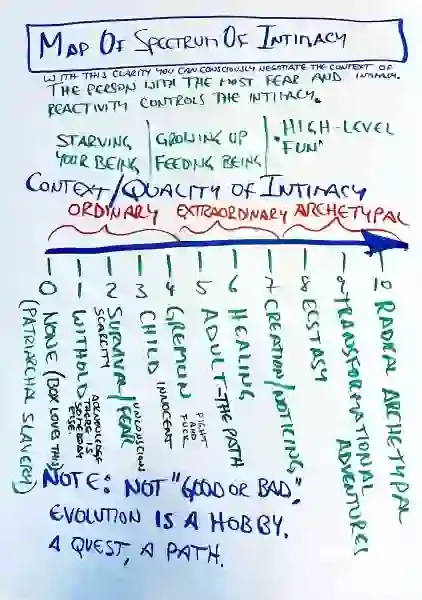 MAP OF SPECTRUM OF INTIMACY
WITH THIS CLARITY YOU CAN CONSCIOUSLY NEGOTIATE THE CONTEXT OF INTIMACY.
THE PERSON WITH THE MOST FEAR AND
REACTIVITY CONTROLS THE INTIMACY.
STARVING YOUR BEING
GROWING UP FEEDING BEING
HIGH-LEVEL "FUN"
CONTEXT/QUALITY OF INTIMACY
ORDINARY EXTRAORDINARY ARCHETYPAL
0 NONE (BOX LOVES THIS)
(PATRIARCHAL SLAVERY)
1 WITHOLD ACKNOWLEDGE THERE IS SOMEBODY ELSE.
2 SURVIVAL/FEAR
SCARCITY
3 CHILD
UNCONSCIOUS
INNOCENT
4 GREMLIN
FIGHT AND FUCK
5 ADULT-THE PATH
6 HEALING
7 CREATION/NOTICING
8 ECSTASY
9 TRANSFORMATIONAL ADVENTURES
10 RADICAL ARCHETYPAL
NOTE: NOT "GOOD OR BAD".
EVOLUTION IS A HOBBY.
A QUEST, A PATH.